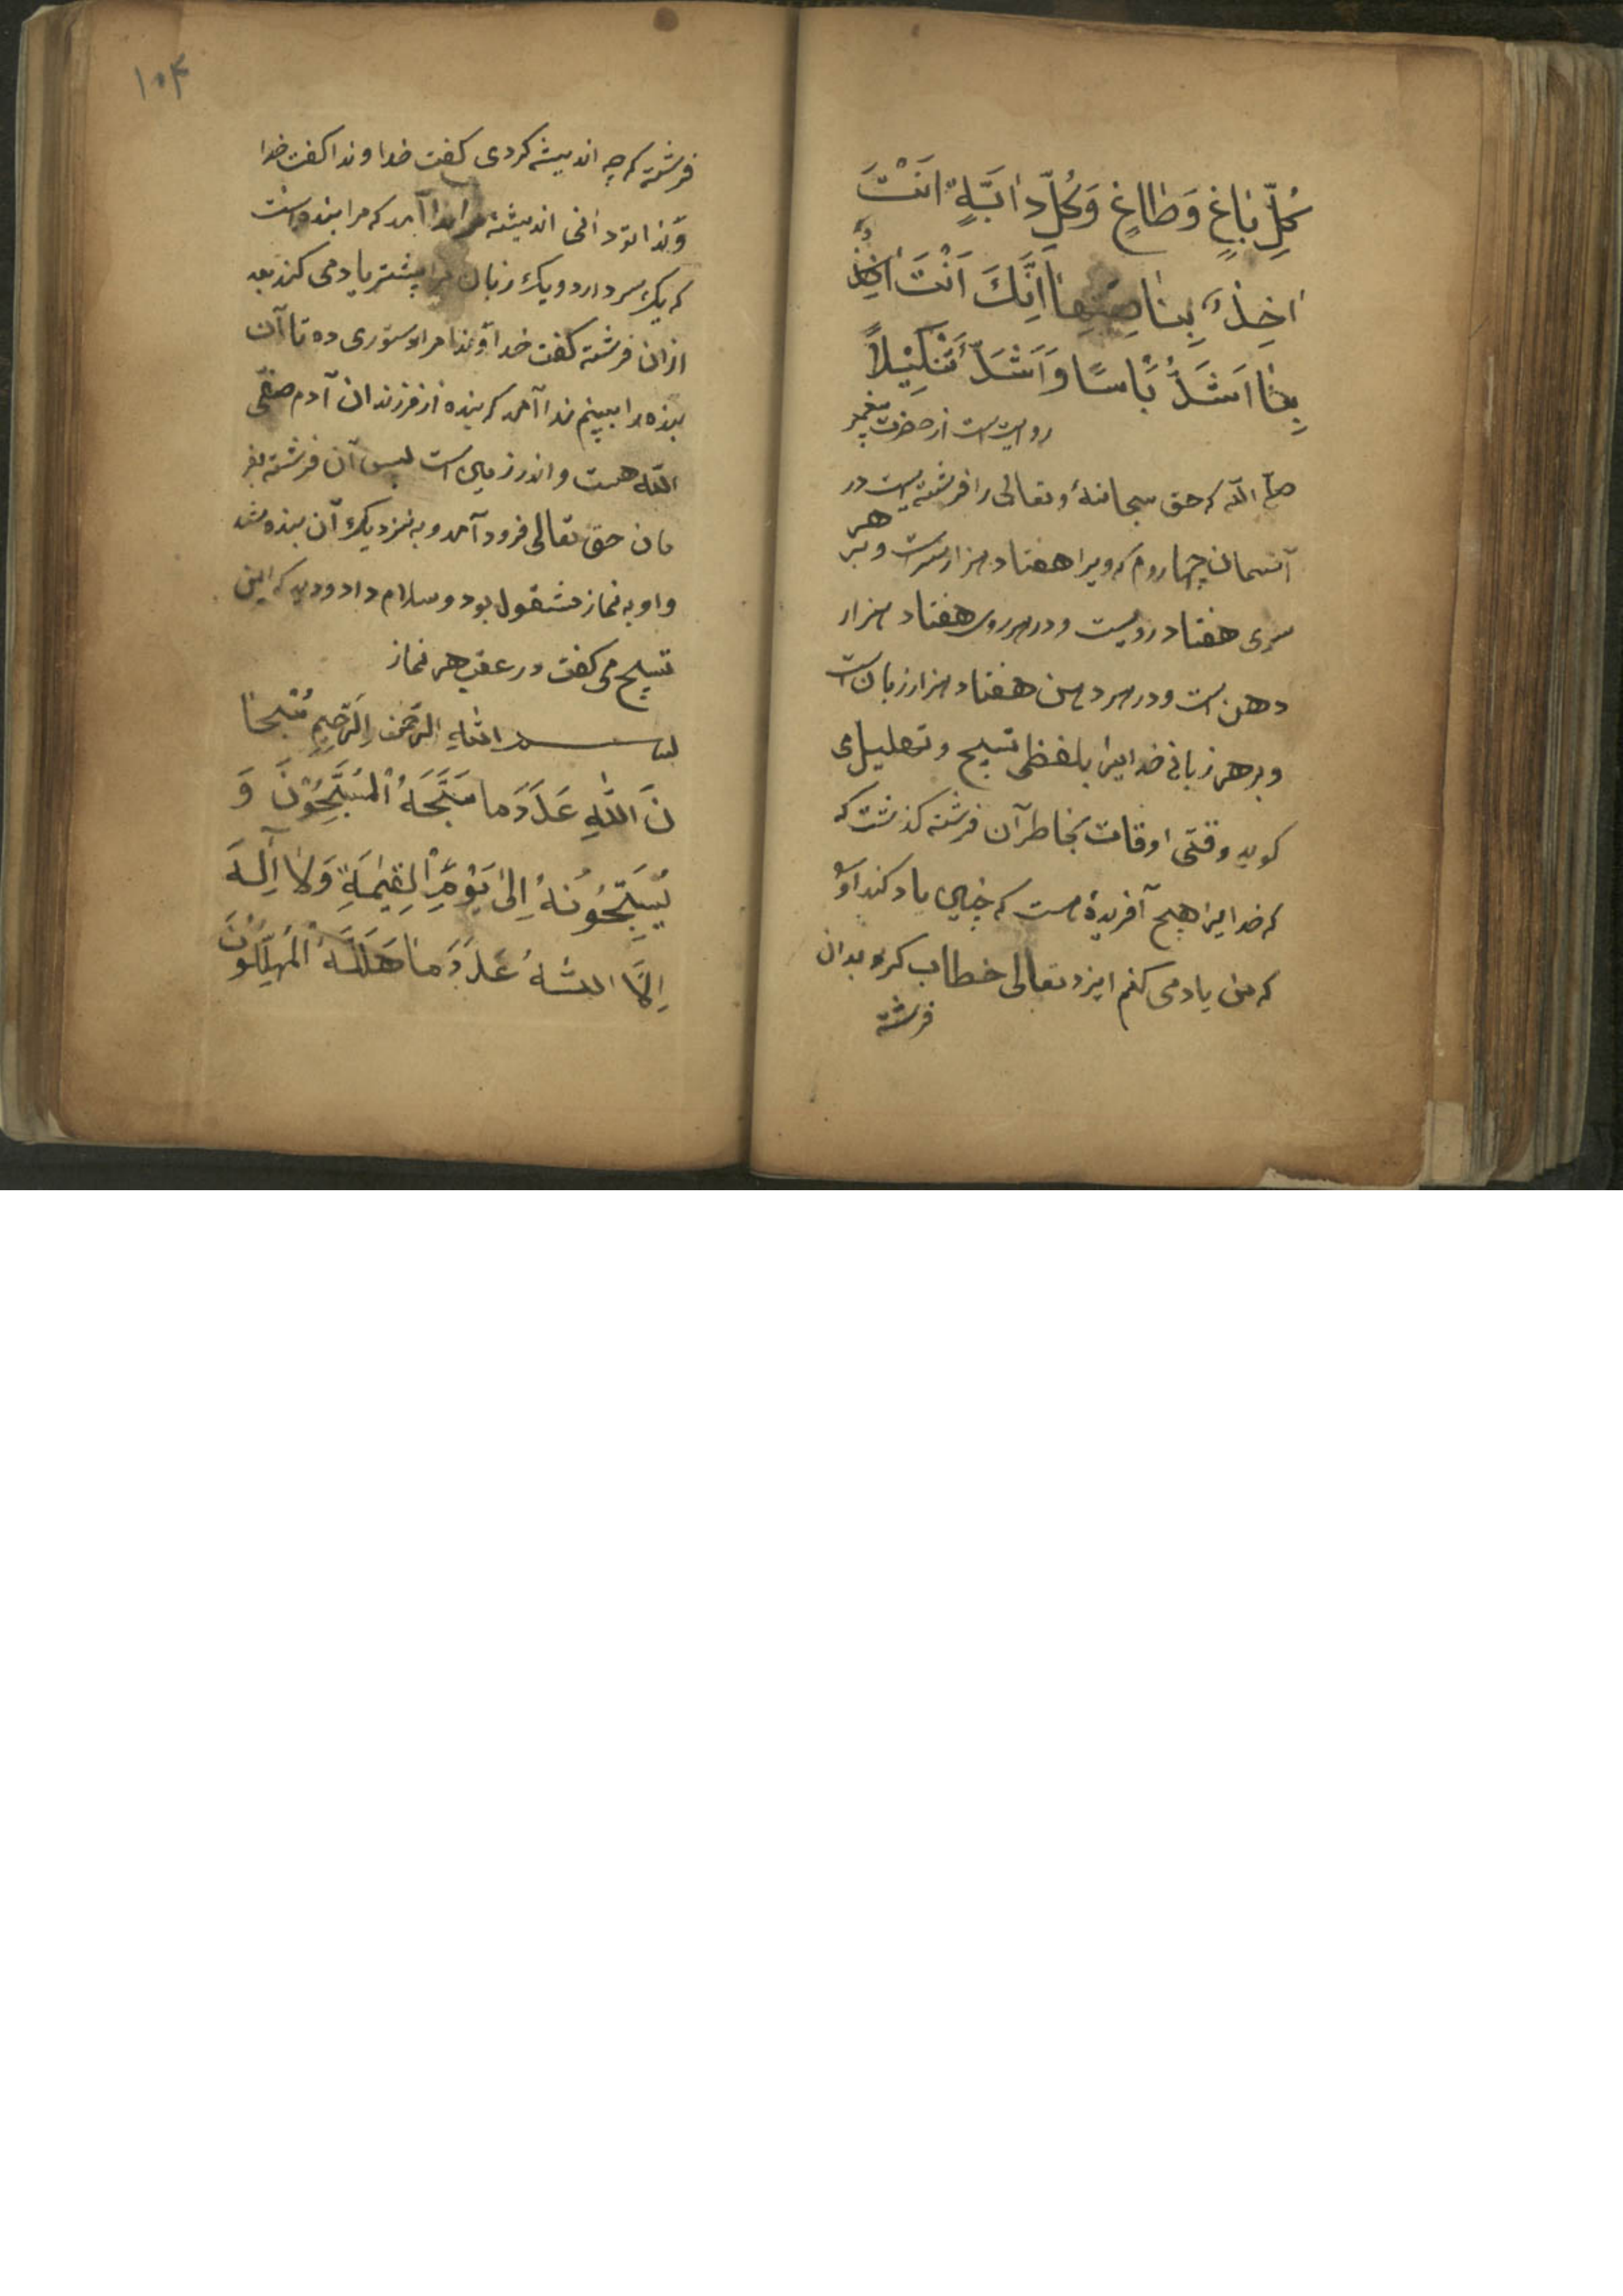 كُلِّ بٰاغٍ وَطٰاغٍ وَكُلِّ دٰابَّةٍ اَنْتَ
اٰخِذٌ بِنٰاصِيَتِهٰا اِنَّكَ اَنْتَ
اَشَدُّ بَأْسًا وَاَشَدُّ تَنْكِيْلاً
روایتست از حضرت پیغمبر
صلی الله که حق سبحانهٔ وتعالی را فرشته‌یست در
آسمان چهاروم که ویرا هفتاد هزار سرست و بر هر
سری هفتاد رویست و در هر روی هفتاد هزار
دهن است و در هر دهن هفتاد هزار زبان است
و بر هر زبانی خدایرا بلفظی تسبیح و تهلیل می
کوید وقتی اوقات بخاطر آن فرشته کذشت که
که خدایرا هیچ آفریدهٔ هست که چنین یاد کند او
که من یاد می کنم ایزد تعالی خطاب کرد بدان
فرشته
۱۰۴
فرشته که چه اندیشه کردی کفت خداوندا کفت خدا
وندا تو دانی اندیشه مرا ندا آمد که مرا بنده است
که یک سر دارد و یک زبان مرا بیشتر یاد می کند بعد
ازان فرشته کفت خداوندا مرا دستوری ده تا آن
بنده را ببینم ندا آمد که بنده از فرزندان آدم صفی
الله هست و اندر زمین است پس آن فرشته بفر
مان حق تعالی فرود آمد و به نزدیک آن بنده شد
و او به نماز مشغول بود و سلام داد و دید که این
تسبیح می کفت در عقب هر نماز
بسم اللهِ الرَّحْمٰنِ الرَّحِيمِ سُبْحٰا
نَ اللهِ عَدَدَ مٰا سَبَّحَهُ الْمُسَبِّحُوْنَ وَ
يُسَبِّحُوْنَهُ اِلیٰ يَوْمِ الْقِيٰمَةِ وَلآ اِلٰهَ
اِلاَّ اللهُ عَدَدَ مٰا هَلَّلَهُ الْمُهَلِّلُوْنَ